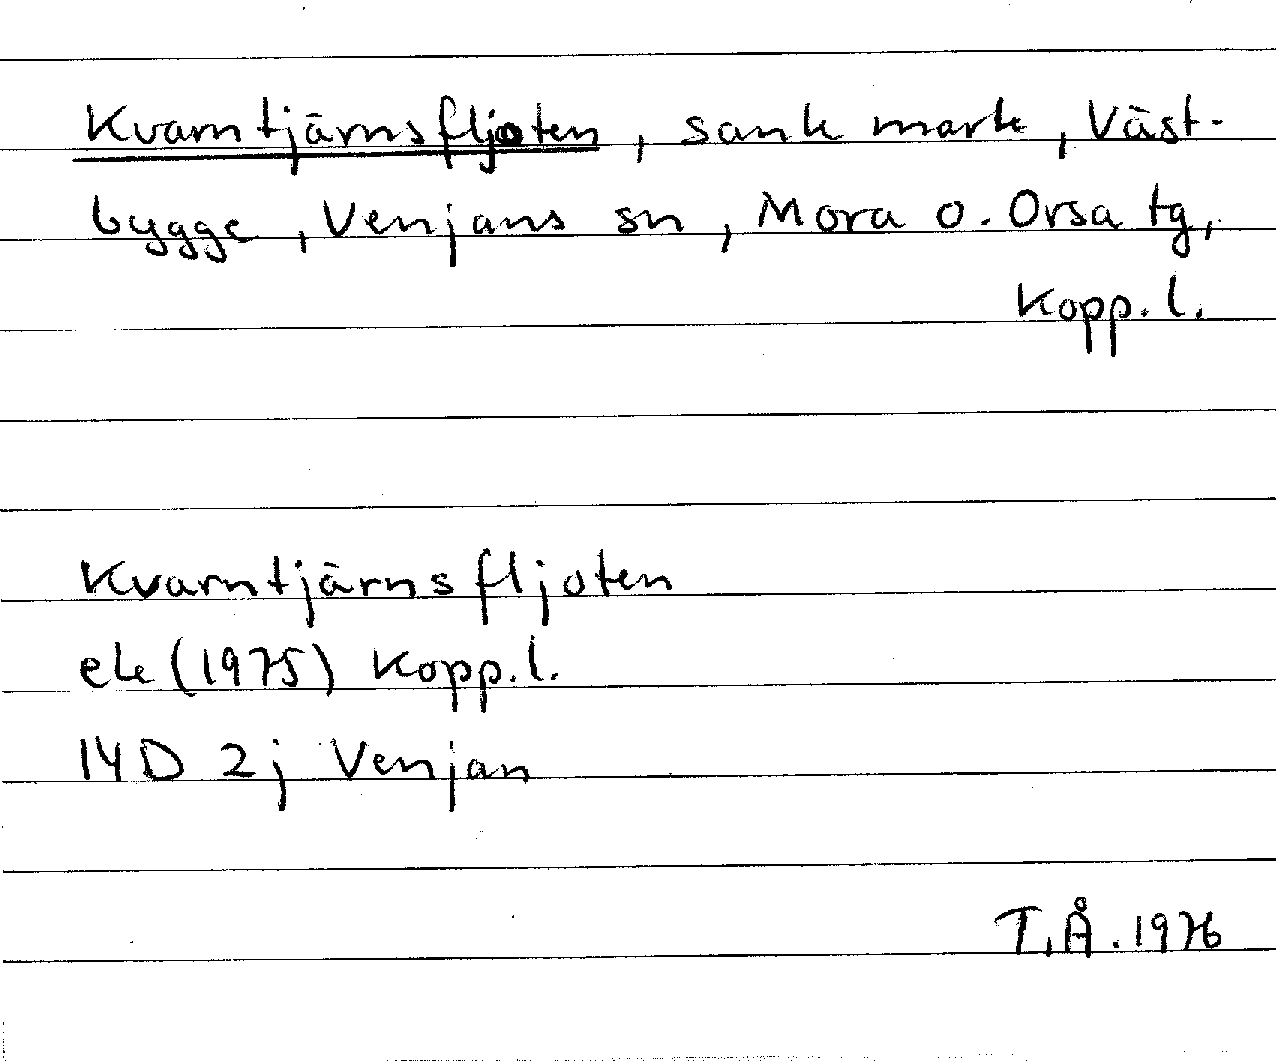 Kvarntjärnsfljoten, sank mark, Väst-
bygge, Venjans sn, Mora o. Orsa tg,
Kopp. l.
Kvarntjärnsfljoten
ek (1975) Kopp. l.
14D 2j Venjan
T.Å. 1976